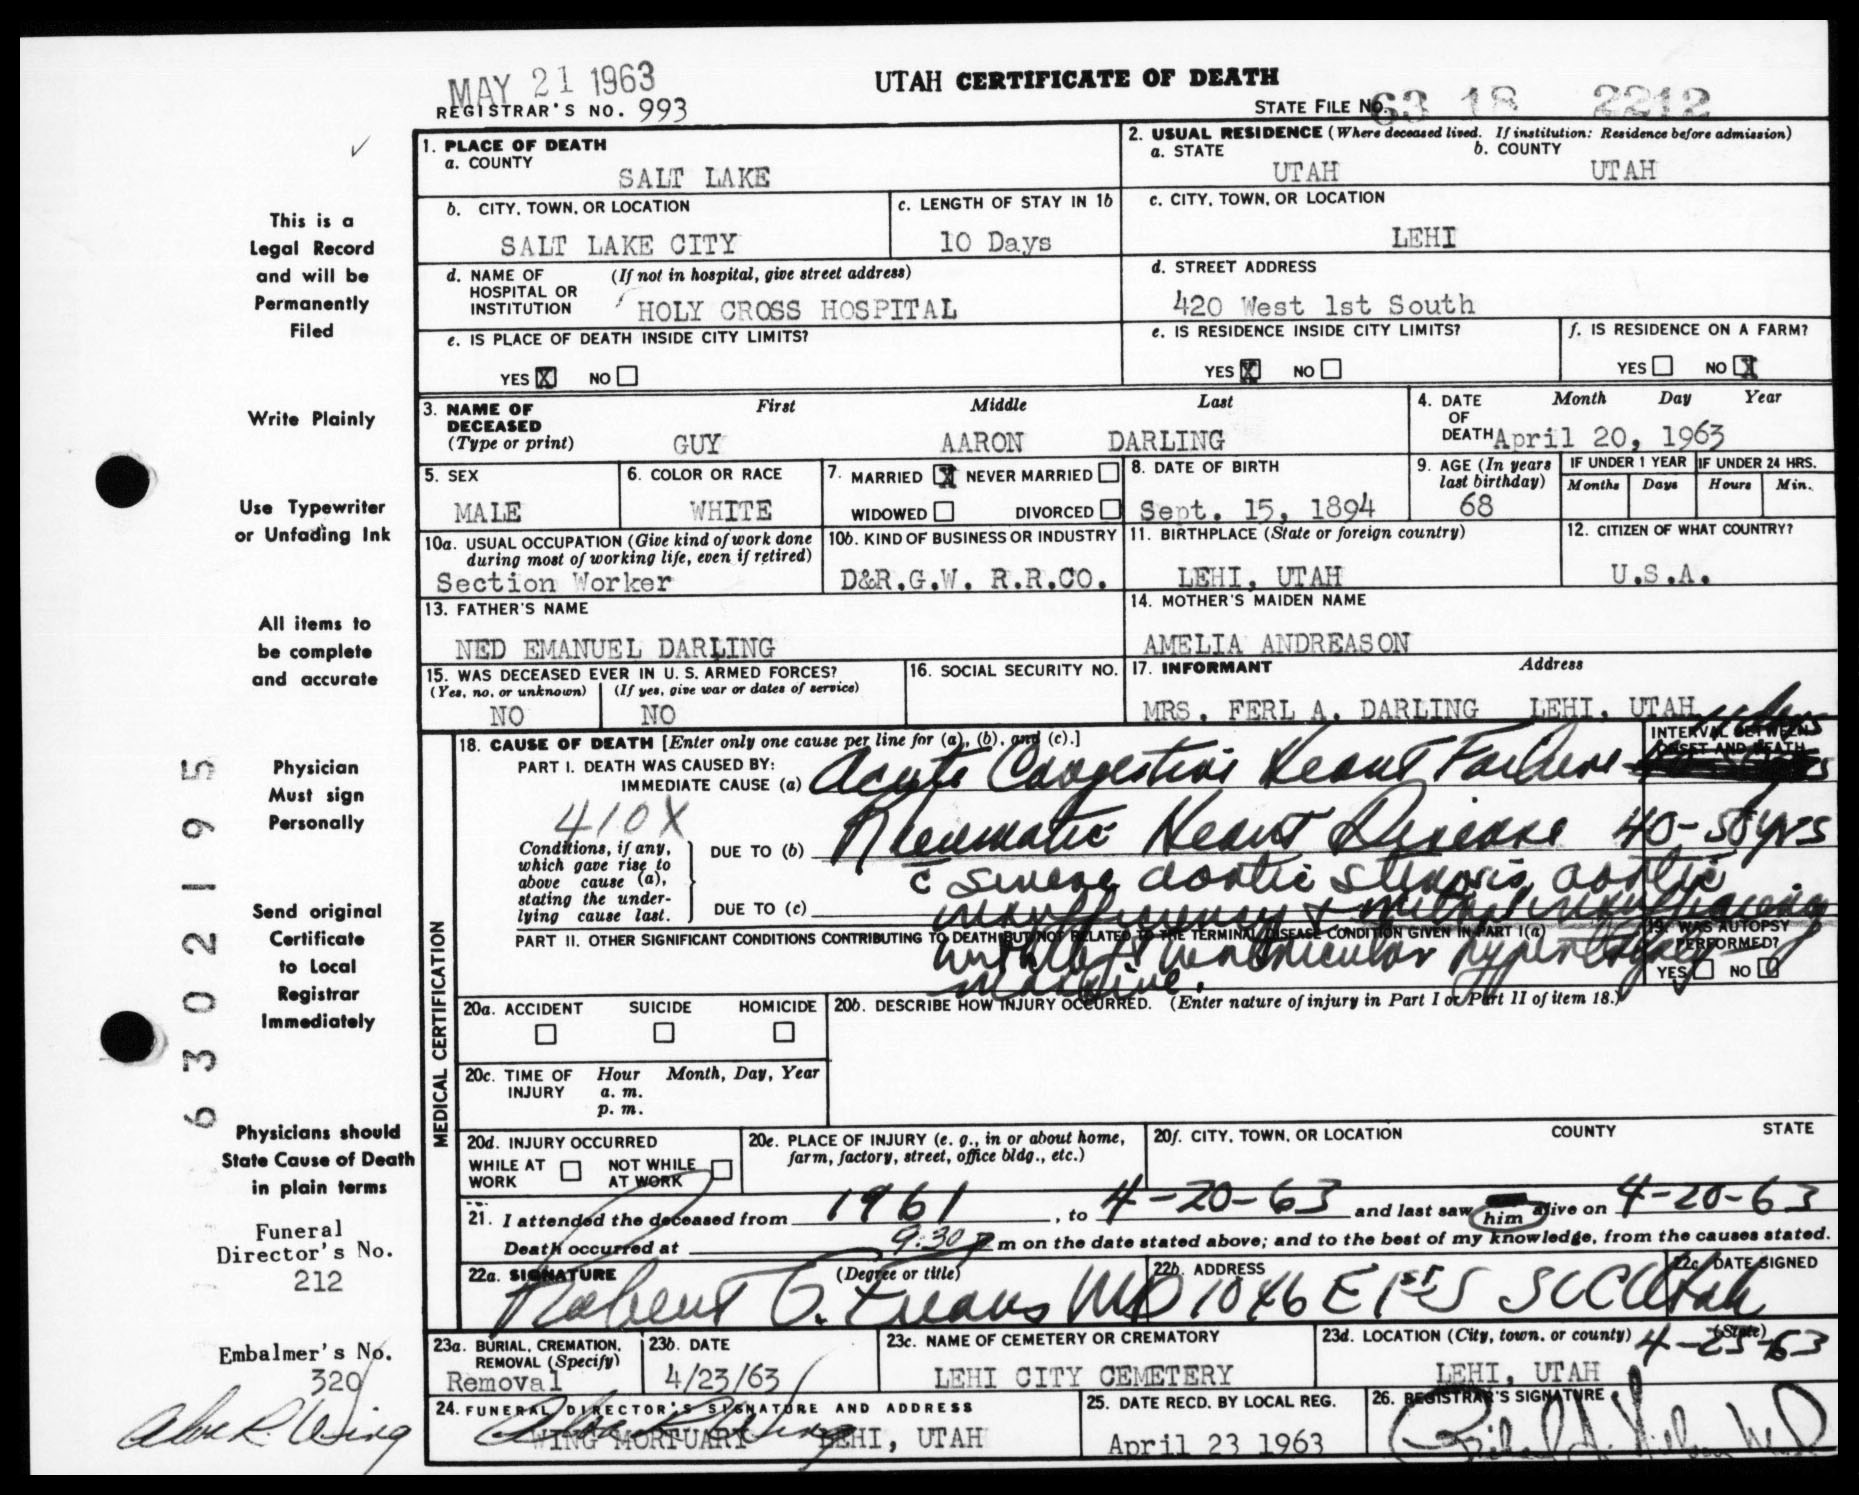 MAY 21 1963
UTAH CERTIFICATE OF DEATH
REGISTRAR'S NO. 993
STATE FILE NO. 63 18 2212
1. PLACE OF DEATH
a. COUNTY
SALT LAKE
2. USUAL RESIDENCE (Where deceased lived. If institution: Residence before admission)
a. STATE b. COUNTY
UTAH UTAH
b. CITY, TOWN, OR LOCATION
SALT LAKE CITY
c. LENGTH OF STAY IN 1b
10 Days
c. CITY, TOWN, OR LOCATION
LEHI
d. NAME OF HOSPITAL OR INSTITUTION (If not in hospital, give street address)
HOLY CROSS HOSPITAL
d. STREET ADDRESS
420 West 1st South
e. IS PLACE OF DEATH INSIDE CITY LIMITS?
YES X NO
e. IS RESIDENCE INSIDE CITY LIMITS?
YES X NO
f. IS RESIDENCE ON A FARM?
YES NO X
3. NAME OF DECEASED (Type or print)
First Middle Last
GUY AARON DARLING
4. DATE OF DEATH Month Day Year
April 20, 1963
5. SEX
MALE
6. COLOR OR RACE
WHITE
7. MARRIED X NEVER MARRIED
WIDOWED DIVORCED
8. DATE OF BIRTH
Sept. 15, 1894
9. AGE (In years last birthday)
68
IF UNDER 1 YEAR IF UNDER 24 HRS.
Months Days Hours Min.
10a. USUAL OCCUPATION (Give kind of work done during most of working life, even if retired)
Section Worker
10b. KIND OF BUSINESS OR INDUSTRY
D&R.G.W. R.R.CO.
11. BIRTHPLACE (State or foreign country)
LEHI, UTAH
12. CITIZEN OF WHAT COUNTRY?
U.S.A.
13. FATHER'S NAME
NED EMANUEL DARLING
14. MOTHER'S MAIDEN NAME
AMELIA ANDREASON
15. WAS DECEASED EVER IN U. S. ARMED FORCES?
(Yes, no, or unknown) (If yes, give war or dates of service)
NO NO
16. SOCIAL SECURITY NO.
17. INFORMANT Address
MRS. FERL A. DARLING LEHI, UTAH
MEDICAL CERTIFICATION
18. CAUSE OF DEATH [Enter only one cause per line for (a), (b), and (c).]
INTERVAL BETWEEN ONSET AND DEATH
PART I. DEATH WAS CAUSED BY:
IMMEDIATE CAUSE (a) Acute Congestive Heart Failure
410X
Conditions, if any, which gave rise to above cause (a), stating the underlying cause last.
DUE TO (b) Rheumatic Heart Disease 40-50 yrs
c severe aortic stenosis, aortic
DUE TO (c) insufficiency & mitral insufficiency
PART II. OTHER SIGNIFICANT CONDITIONS CONTRIBUTING TO DEATH BUT NOT RELATED TO THE TERMINAL DISEASE CONDITION GIVEN IN PART I(a)
with left ventricular hypertrophy
massive.
19. WAS AUTOPSY PERFORMED?
YES NO
20a. ACCIDENT SUICIDE HOMICIDE
20b. DESCRIBE HOW INJURY OCCURRED. (Enter nature of injury in Part I or Part II of item 18.)
20c. TIME OF INJURY Hour Month, Day, Year
a. m.
p. m.
20d. INJURY OCCURRED
WHILE AT WORK NOT WHILE AT WORK
20e. PLACE OF INJURY (e. g., in or about home, farm, factory, street, office bldg., etc.)
20f. CITY, TOWN, OR LOCATION COUNTY STATE
21. I attended the deceased from 1961, to 4-20-63 and last saw him alive on 4-20-63
Death occurred at 9:30 p m on the date stated above; and to the best of my knowledge, from the causes stated.
22a. SIGNATURE (Degree or title)
Robert O. Evans MD
22b. ADDRESS
1046 E 1st S SLC Utah
22c. DATE SIGNED
4-23-63
23a. BURIAL, CREMATION, REMOVAL (Specify)
Removal
23b. DATE
4/23/63
23c. NAME OF CEMETERY OR CREMATORY
LEHI CITY CEMETERY
23d. LOCATION (City, town, or county) (State)
LEHI, UTAH
24. FUNERAL DIRECTOR'S SIGNATURE AND ADDRESS
WING MORTUARY LEHI, UTAH
25. DATE RECD. BY LOCAL REG.
April 23 1963
26. REGISTRAR'S SIGNATURE
This is a
Legal Record
and will be
Permanently
Filed
Write Plainly
Use Typewriter
or Unfading Ink
All items to
be complete
and accurate
Physician
Must sign
Personally
Send original
Certificate
to Local
Registrar
Immediately
Physicians should
State Cause of Death
in plain terms
Funeral
Director's No.
212
Embalmer's No.
320
6302195